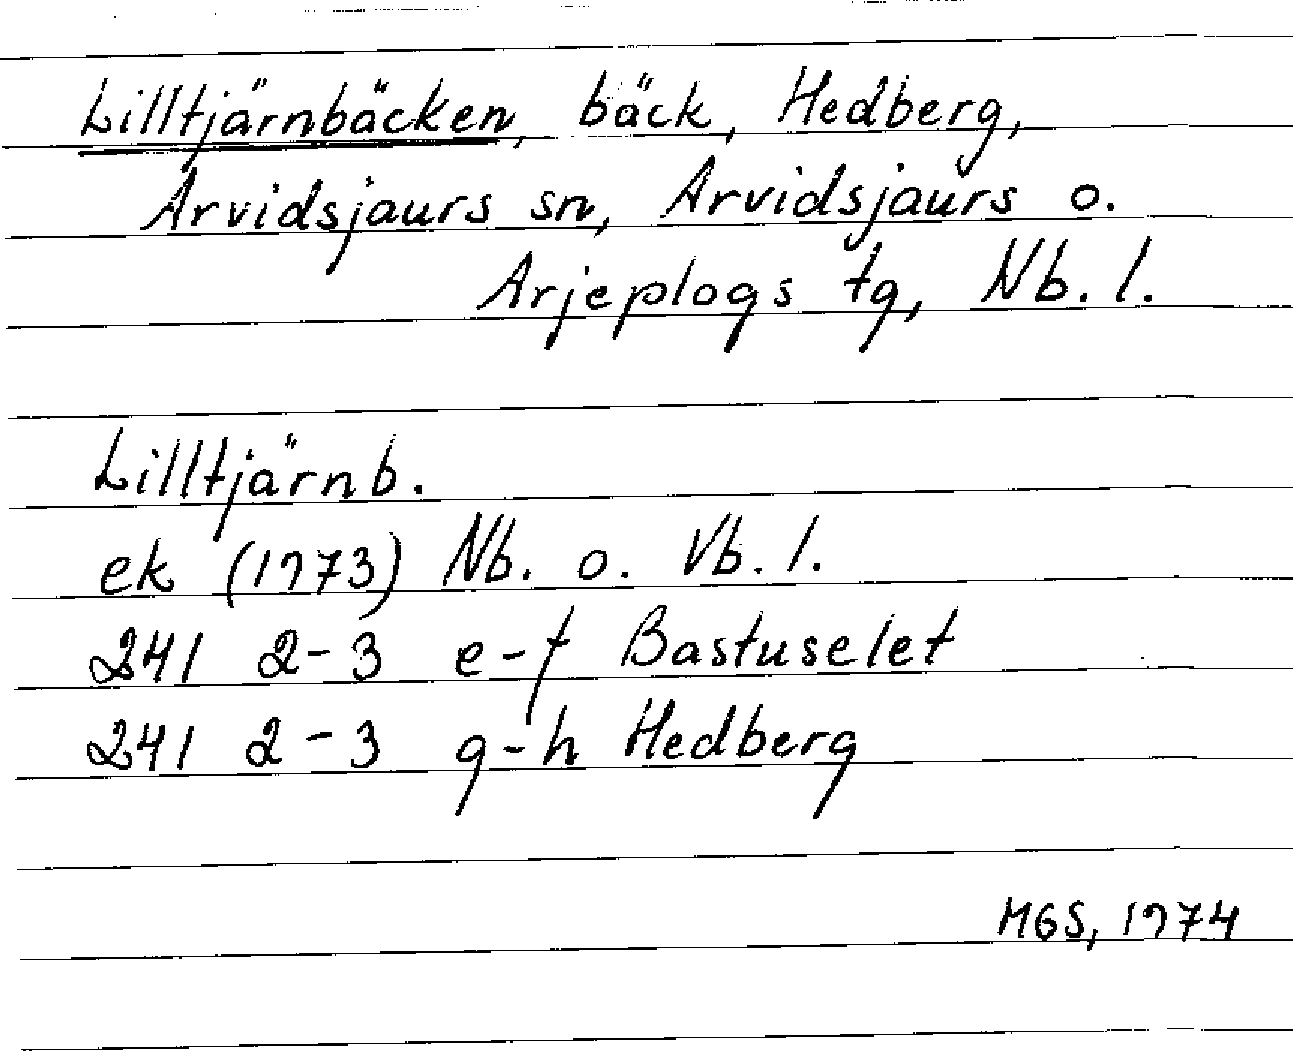 Lilltjärnbäcken, bäck, Hedberg,
Arvidsjaurs sn, Arvidsjaurs o.
Arjeplogs tg, Nb. l.
Lilltjärnb.
ek (1973) Nb. o. Vb. l.
241 2-3 e-f Bastuselet
241 2-3 g-h Hedberg
MGS, 1974